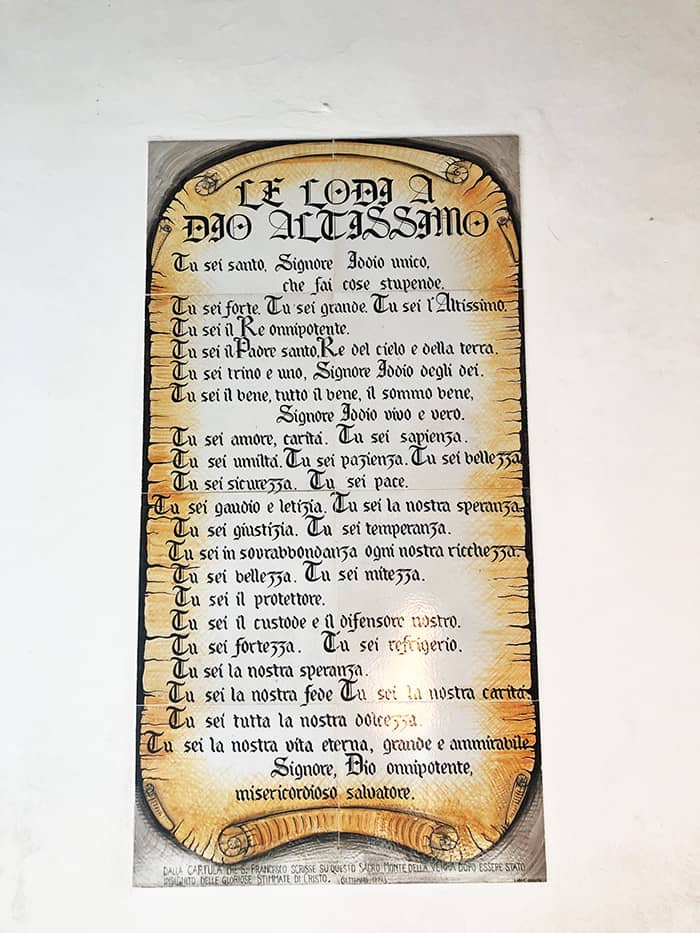 LE LODI A
DIO ALTISSIMO
Tu sei santo, Signore Iddio unico,
che fai cose stupende.
Tu sei forte. Tu sei grande. Tu sei l'Altissimo.
Tu sei il Re onnipotente.
Tu sei il Padre santo, Re del cielo e della terra.
Tu sei trino e uno, Signore Iddio degli dei.
Tu sei il bene, tutto il bene, il sommo bene,
Signore Iddio vivo e vero.
Tu sei amore, carità. Tu sei sapienza.
Tu sei umiltà. Tu sei pazienza. Tu sei bellezza
Tu sei sicurezza. Tu sei pace.
Tu sei gaudio e letizia. Tu sei la nostra speranza.
Tu sei giustizia. Tu sei temperanza.
Tu sei in sovrabbondanza ogni nostra ricchezza.
Tu sei bellezza. Tu sei mitezza.
Tu sei il protettore.
Tu sei il custode e il difensore nostro.
Tu sei fortezza. Tu sei refrigerio.
Tu sei la nostra speranza.
Tu sei la nostra fede Tu sei la nostra carità.
Tu sei tutta la nostra dolcezza.
Tu sei la nostra vita eterna, grande e ammirabile
Signore, Dio onnipotente,
misericordioso salvatore.
DALLA CARTULA CHE S. FRANCESCO SCRISSE SU QUESTO SACRO MONTE DELLA VERNA DOPO ESSERE STATO
INSIGNITO DELLE GLORIOSE STIMMATE DI CRISTO.